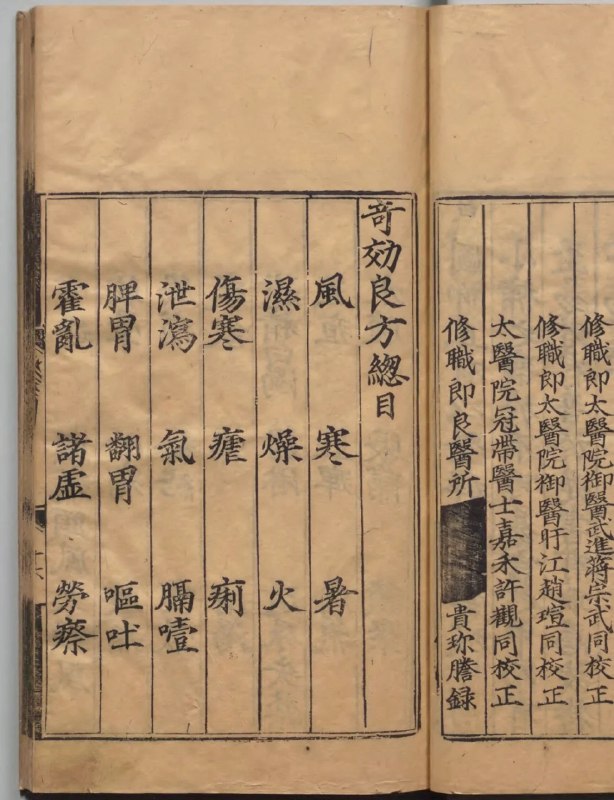 修職郎太醫院御醫武進蔣崇武同校正
修職郎太醫院御醫旴江趙瑄同校正
太醫院冠帶醫士嘉禾許觀同校正
修職郎良醫所 貴珎謄録
奇効良方總目
風 寒 暑
濕 燥 火
傷寒 瘧 痢
泄瀉 氣 膈噎
脾胃 翻胃 嘔吐
霍亂 諸虛 勞瘵